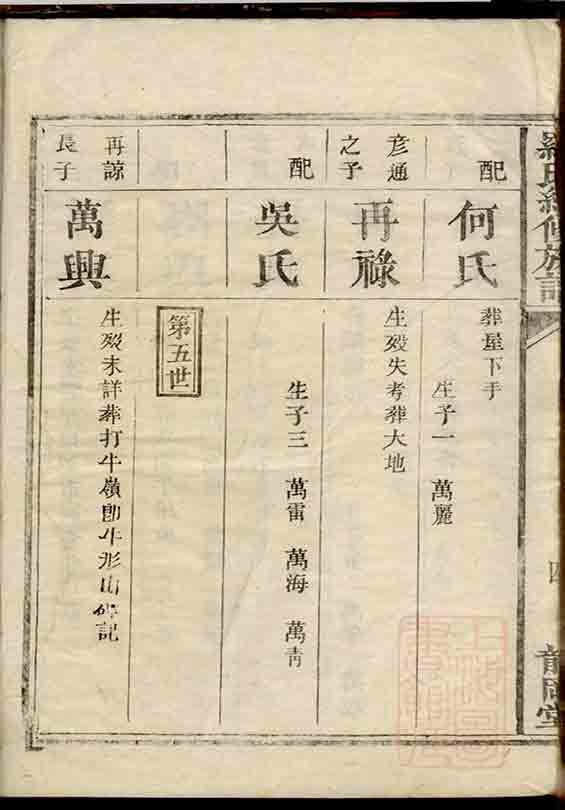 羅氏續修族譜
四
配
何氏
葬屋下手
生子一 萬麗
彦通
之子
再祿
生殁失考葬大地
配
吳氏
生子三 萬雷 萬海 萬青
第五世
再諒
長子
萬興
生殁未詳葬打牛嶺即牛形山 記